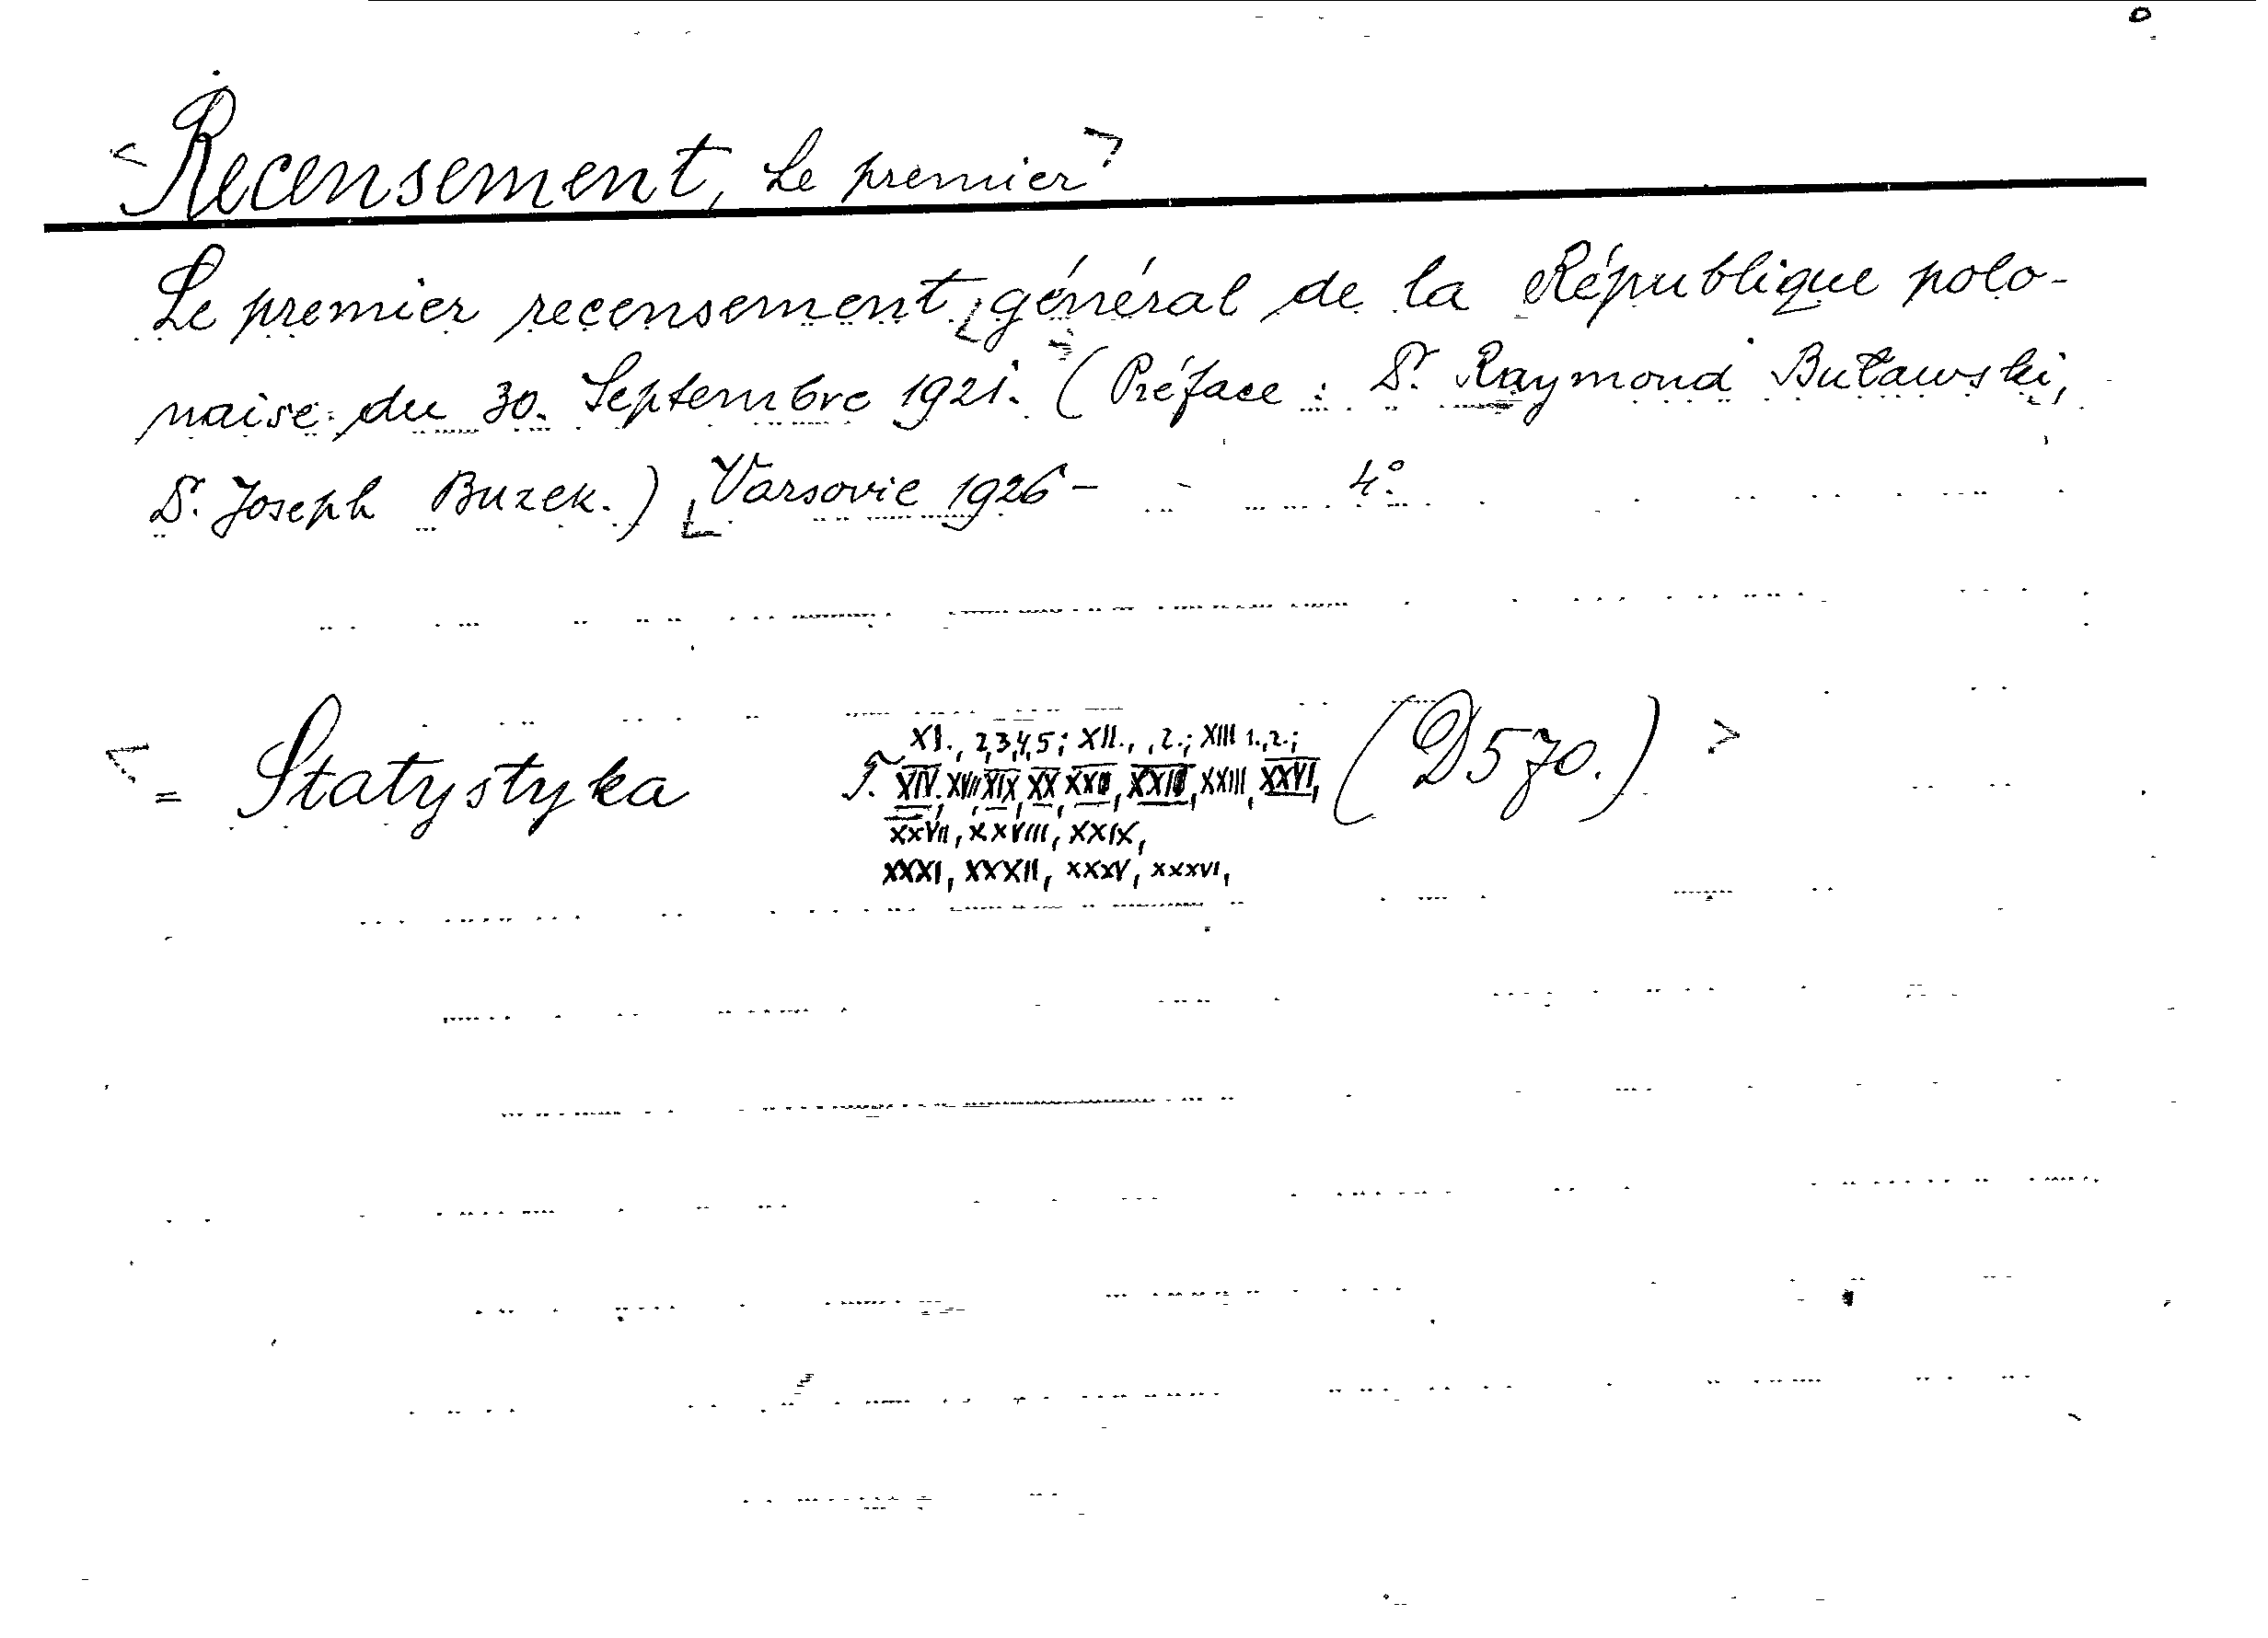 <Recensement, Le premier>
Le premier recensement général de la République polo-
naise du 30. Septembre 1921. (Préface: Dr. Raymond Buławski,
Dr. Joseph Buzek.) Varsovie 1926 - 4°.
XI., 2,3,4,5; XII., ,2.; XIII 1.,2.;
<= Statystyka T. XIV. XVII, XIX, XX, XXIII, XXVI, (D570.)>
XXVII, XXVIII, XXIX,
XXXI, XXXII, XXXV, XXXVI,